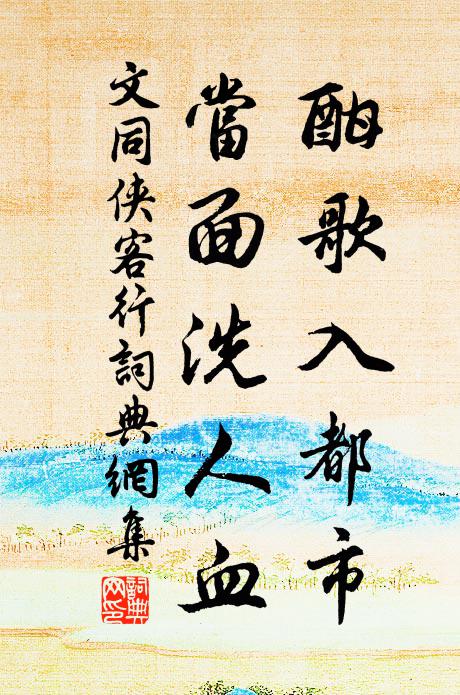 酣歌入都市
當面洗人血
文同俠客行詞典網集
詞典
网印